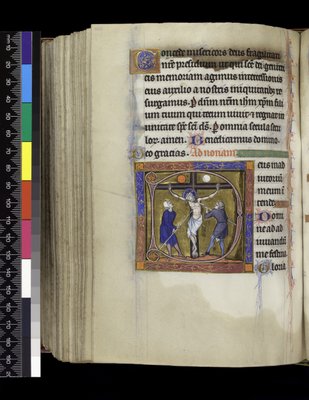 Concede misericors deus fragilitati
nre presidium ut qui sce dei genitri
cis memoriam agimus intercessionis
eius auxilio a nostris iniquitatibz re
surgamus. P dnm nrm ihm xpm fili
um tuum qui tecum uiuit & regnat in
unitate sps sci ds. P omnia secula secu
lor. amen. Benedicamus domino.
Deo gracias. Ad nonam
eus in ad
iutoriu
meum i
tende
Dom
ne ad ad
iuuandu
me festina
Gloria